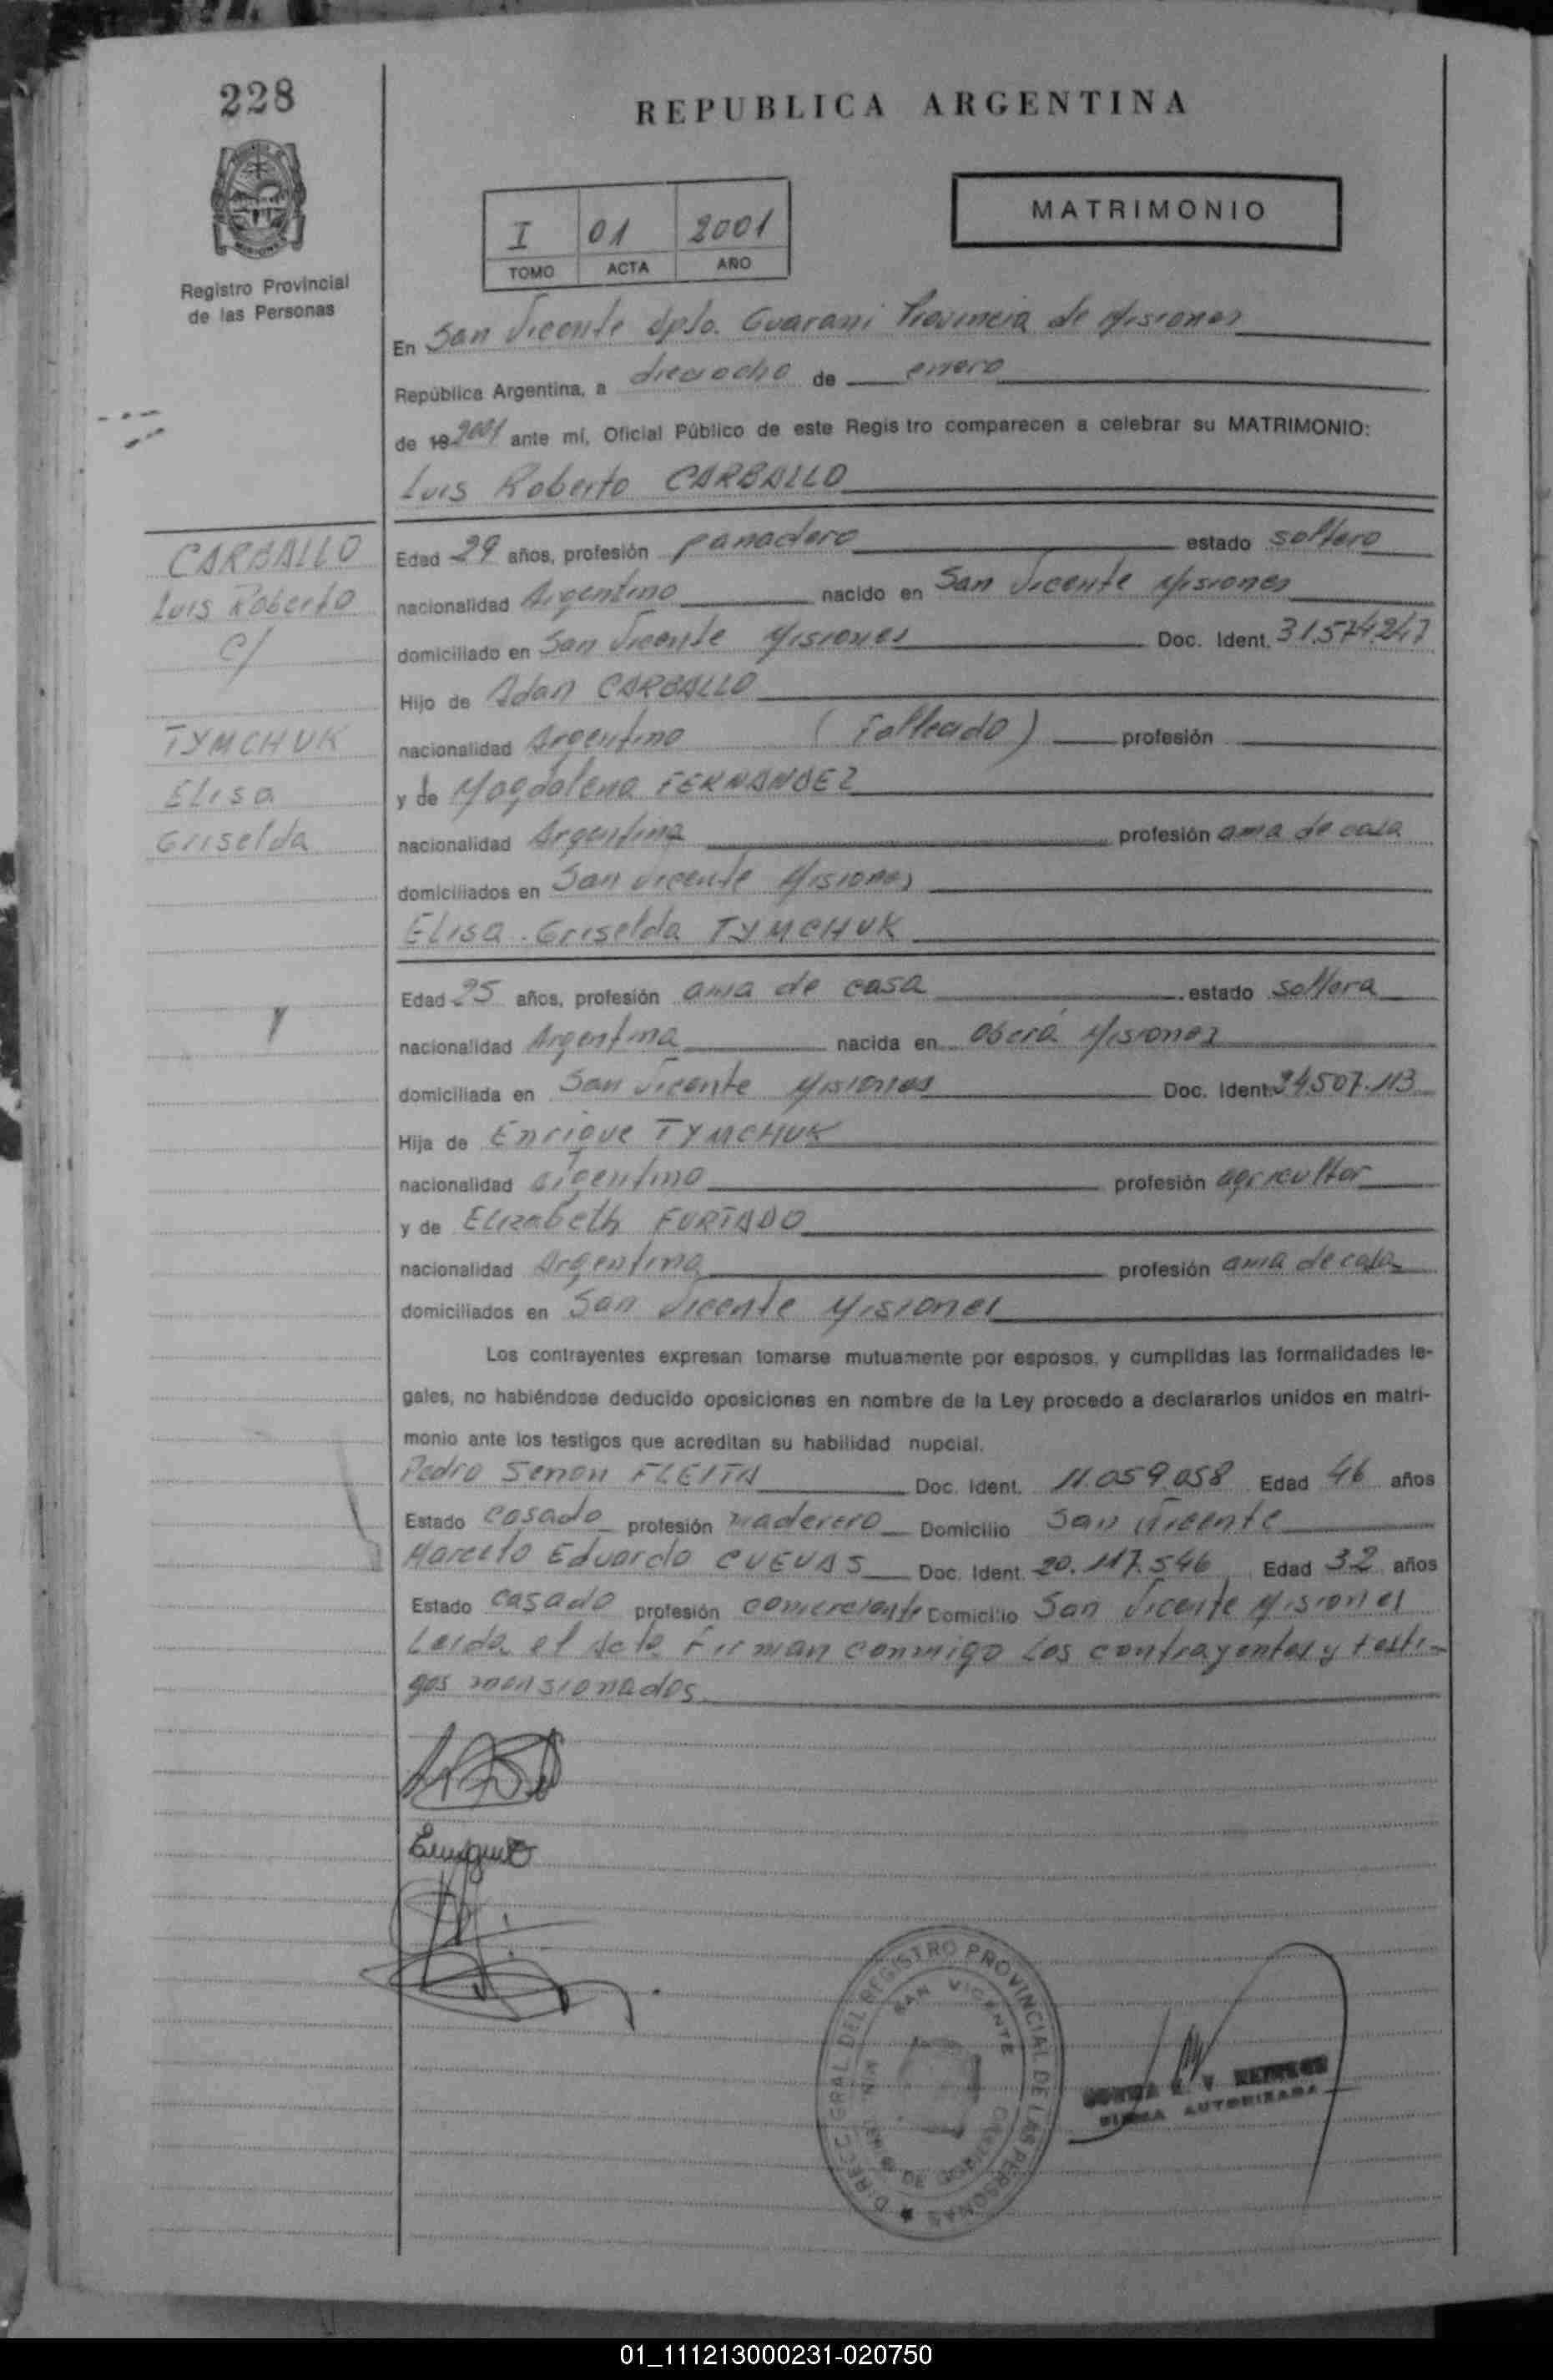 228
REPUBLICA ARGENTINA
MATRIMONIO
I 01 2001
TOMO ACTA AÑO
Registro Provincial
de las Personas
En San Vicente dpto. Guarani Provincia de Misiones
República Argentina, a dieciocho de enero
de 19 2001 ante mí, Oficial Público de este Regis tro comparecen a celebrar su MATRIMONIO:
Luis Roberto CARBALLO
CARBALLO
Luis Roberto
c/
TYMCHUK
Elisa
Griselda
Edad 29 años, profesión panadero estado soltero
nacionalidad Argentino nacido en San Vicente Misiones
domiciliado en San Vicente Misiones Doc. Ident. 31.574.247
Hijo de Adan CARBALLO
nacionalidad Argentino (Falleado) profesión
y de Magdalena FERNANDEZ
nacionalidad Argentina profesión ama de casa
domiciliados en San Vicente Misiones
Elisa Griselda TYMCHUK
Edad 25 años, profesión ama de casa estado soltera
nacionalidad Argentina nacida en Oberá Misiones
domiciliada en San Vicente Misiones Doc. Ident. 24.507.113
Hija de Enrique TYMCHUK
nacionalidad argentino profesión agricultor
y de Elizabeth FURTADO
nacionalidad Argentina profesión ama de casa
domiciliados en San Vicente Misiones
Los contrayentes expresan tomarse mutuamente por esposos, y cumplidas las formalidades le-
gales, no habiéndose deducido oposiciones en nombre de la Ley procedo a declararlos unidos en matri-
monio ante los testigos que acreditan su habilidad nupcial.
Pedro Senon FLEITA Doc. Ident. 11.059.058 Edad 46 años
Estado casado profesión maderero Domicilio San Vicente
Marcelo Eduardo CUEVAS Doc. Ident. 20.117.546 Edad 32 años
Estado casado profesión comerciante Domicilio San Vicente Misiones
Leida el Acta Firman conmigo los contrayentes y testi-
gos mensionados
DIRECC. GRAL DEL REGISTRO PROVINCIAL DE LAS PERSONAS
SAN VICENTE
FIRMA AUTORIZADA
01_111213000231-020750